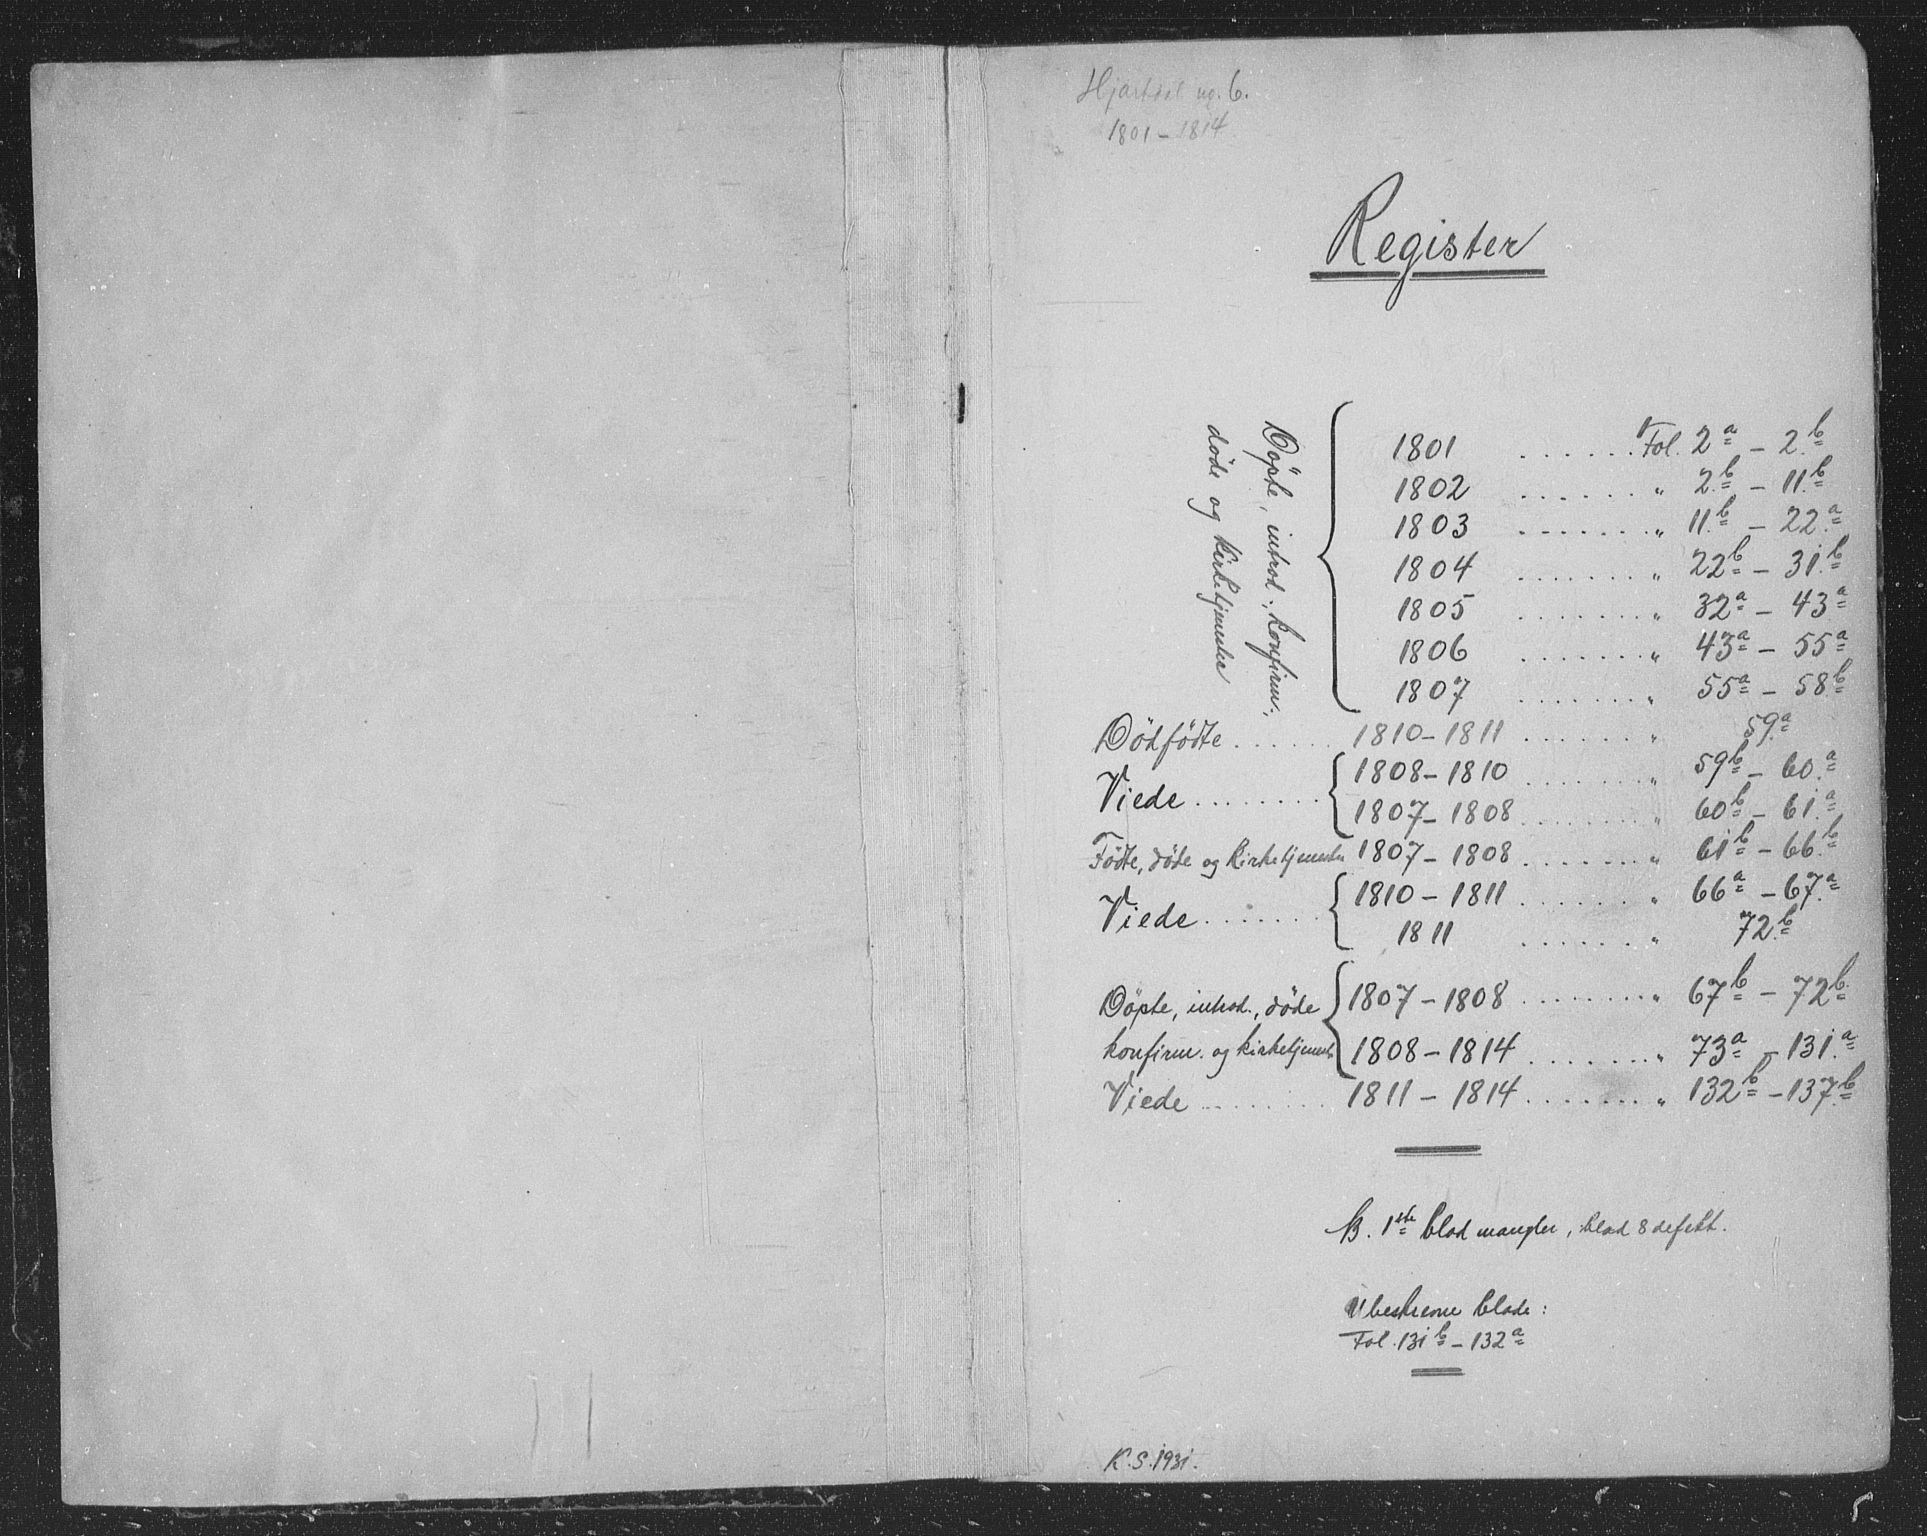 Hjartdal nr. 6.
1801 – 1814
Register
Döpte, introd., konfirm.,
døde og kirketjenester
1801 . . . . . . Fol. 2a – 2b
1802 . . . . . . " 2b – 11b
1803 . . . . . . " 11b – 22a
1804 . . . . . . " 22b – 31b
1805 . . . . . . " 32a – 43a
1806 . . . . . . " 43a – 55a
1807 . . . . . . " 55a – 58b
Dödfödte . . . . . 1810 – 1811 . . . . . . " 59a
Viede . . . . . . . 1808 – 1810 . . . . . . " 59b – 60a
1807 – 1808 . . . . . . " 60b – 61a
Födte, döde og kirketjenester 1807 – 1808 . . . . . . " 61b – 66b
Viede . . . . . . 1810 – 1811 . . . . . . " 66a – 67a
1811 . . . . . . " 72b
Döpte, introd., döde 1807 – 1808 . . . . . . " 67b – 72b
konfirm. og kirketjenester 1808 – 1814 . . . . . . " 73a – 131a
Viede . . . . . . 1811 – 1814 . . . . . . " 132b – 137b
1ste blad mangler, blad 8 defekt.
Ubeskrevne blade:
Fol. 131b – 132a
K. S. 1931.